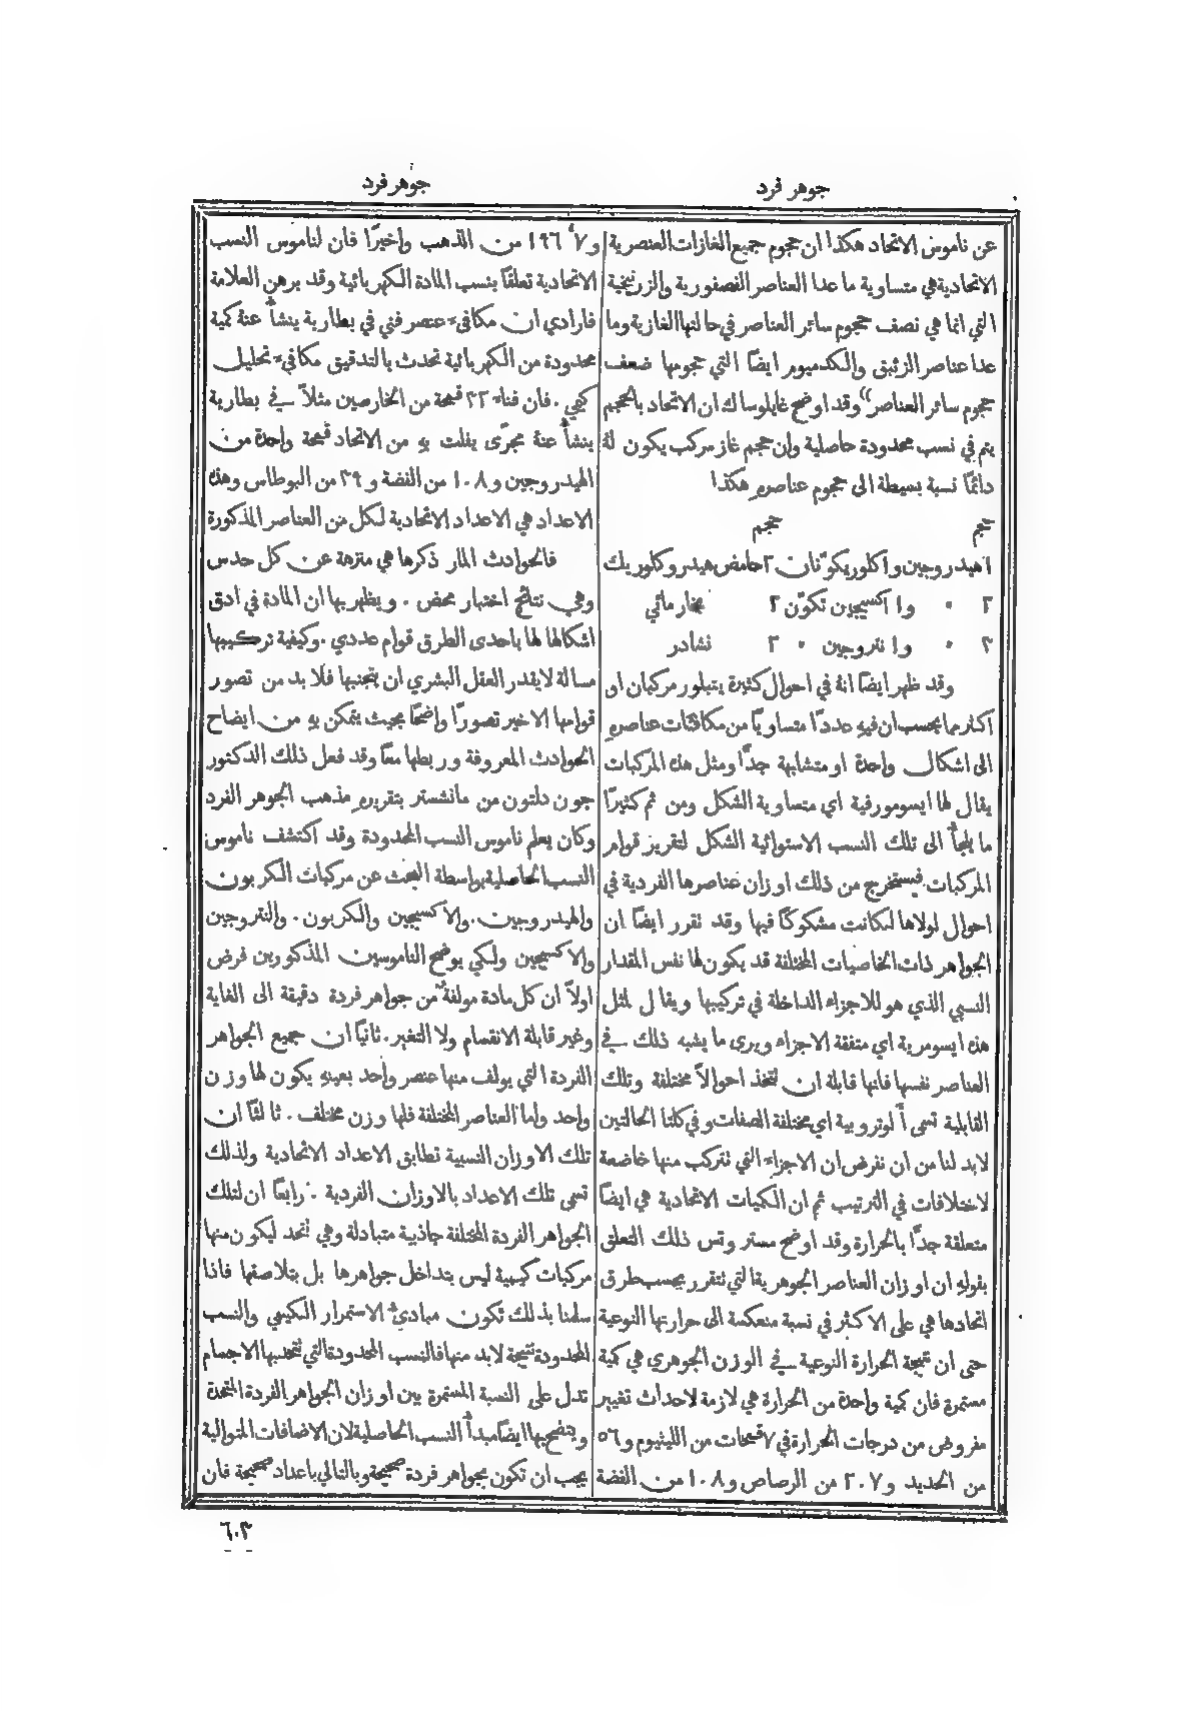 جوهر فرد
عن ناموس الاتحاد هكذا ان حجوم جميع الغازات العنصرية
الاتحادية هي متساوية ما عدا العناصر الفصفورية والزرنيخية
التي انما هي نصف حجوم سائر العناصر في حالتها الغازية وما
عدا عناصر الزئبق والكدميوم ايضًا التي حجومها ضعف
حجوم سائر العناصر)) وقد اوضح غايلوساك ان الاتحاد بالحجم
يتم في نسب محدودة حاصلية وان حجم غاز مركب يكون لهُ
دائمًا نسبة بسيطة الى حجوم عناصرهِ هكذا
حجم حجم
١ هيدروجين و١ كلور يكوّنان ٢ حامض هيدروكلوريك
٢ " و١ اكسيجين تكوّن ٢ بخار مائي
٣ " و١ نتروجين " ٢ نشادر
وقد ظهر ايضًا انهُ في احوال كثيرة يتبلور مركبان او
اكثر مما يحسب ان فيهِ عددًا متساويًا من مكافئات عناصرهِ
الى اشكال واحدة او متشابهة جدًّا ومثل هذه المركبات
يقال لها ايسومورفية اي متساوية الشكل ومن ثم كثيرًا
ما يلجأ الى تلك النسب الاستوائية الشكل لتقرير قوام
المركبات فيستخرج من ذلك اوزان عناصرها الفردية في
احوال لولاها لكانت مشكوكًا فيها وقد تقرر ايضًا ان
الجواهر ذات الخاصيات المختلفة قد يكون لها نفس المقدار
النسبي الذي هو للاجزاء الداخلة في تركيبها ويقال لمثل
هذه ايسومرية اي متفقة الاجزاء ويرى ما يشبه ذلك في
العناصر نفسها فانها قابلة ان تتخذ احوالاً مختلفة وتلك
القابلية تسمى أُلوتروبية اي مختلفة الصفات وفي كلتا الحالتين
لابد لنا من ان نفرض ان الاجزاء التي تتركب منها خاضعة
لاختلافات في الترتيب ثم ان الكميات الاتحادية هي ايضًا
متعلقة جدًّا بالحرارة وقد اوضح مستر وتس ذلك التعلق
بقولهِ ان اوزان العناصر الجوهرية التي تتقرر بحسب طرق
اتحادها هي على الاكثر في نسبة منعكسة الى حرارتها النوعية
حتى ان نتيجة الحرارة النوعية في الوزن الجوهري هي كمية
مستمرة فان كمية واحدة من الحرارة هي لازمة لاحداث تغيير
مفروض من درجات الحرارة في ٧ قمحات من الليثيوم و٥٦
من الحديد و٢٠٧ من الرصاص و١٠٨ من الفضة
جوهر فرد
و١٩٦٫٧ من الذهب واخيرًا فان لناموس النسب
الاتحادية تعلقًا بنسب المادة الكهربائية وقد برهن العلامة
فارادي ان مكافىء عنصر فني في بطارية ينشأ عنهُ كمية
محدودة من الكهربائية تحدث بالتدقيق مكافىء تحليل
كيمي . فان فناء ٣٢ قمحة من الخارصين مثلاً في بطارية
ينشأ عنهُ مجرًى يفلت بهِ من الاتحاد قمحة واحدة من
الهيدروجين و١٠٨ من الفضة و٣٩ من البوطاس وهذه
الاعداد هي الاعداد الاتحادية لكل من العناصر المذكورة
فالحوادث المار ذكرها هي منزهة عن كل حدس
وهي نتائج اختبار محض . ويظهر بها ان المادة في ادق
اشكالها لها باحدى الطرق قوام عددي . وكيفية تركيبها
مسالة لا يقدر العقل البشري ان يتجنبها فلا بد من تصور
قوامها الاخير تصورًا واضحًا بحيث يتمكن بهِ من ايضاح
الحوادث المعروفة وربطها معًا وقد فعل ذلك الدكتور
جون دلتون من مانشستر بتقريرهِ مذهب الجوهر الفرد
وكان يعلم ناموس النسب المحدودة وقد اكتشف ناموس
النسب الحاصلية بواسطة البحث عن مركبات الكربون
والهيدروجين . والاكسيجين والكربون . والنتروجين
والاكسيجين ولكي يوضح الناموسين المذكورين فرض
اولاً ان كل مادة مولفة من جواهر فردة دقيقة الى الغاية
وغير قابلة الانقسام ولا التغير . ثانيًا ان جميع الجواهر
الفردة التي يولف منها عنصر واحد بعينهِ يكون لها وزن
واحد واما العناصر المختلفة فلها وزن مختلف . ثالثًا ان
تلك الاوزان النسبية تطابق الاعداد الاتحادية ولذلك
تسمى تلك الاعداد بالاوزان الفردية . رابعًا ان لتلك
الجواهر الفردة المختلفة جاذبية متبادلة وهي تتحد ليكون منها
مركبات كيمية ليس بتداخل جواهرها بل بتلاصقها فاذا
سلمنا بذلك تكون مبادئ الاستمرار الكيمي والنسب
المحدودة نتيجة لابد منها فالنسب المحدودة التي تتحد بها الاجسام
تدل على النسبة المستمرة بين اوزان الجواهر الفردة المتحدة
ويتضح بها ايضًا مبدأُ النسب الحاصلية لان الاضافات المتوالية
يجب ان تكون بجواهر فردة صحيحة وبالتالي باعداد صحيحة فان
٦٠٣